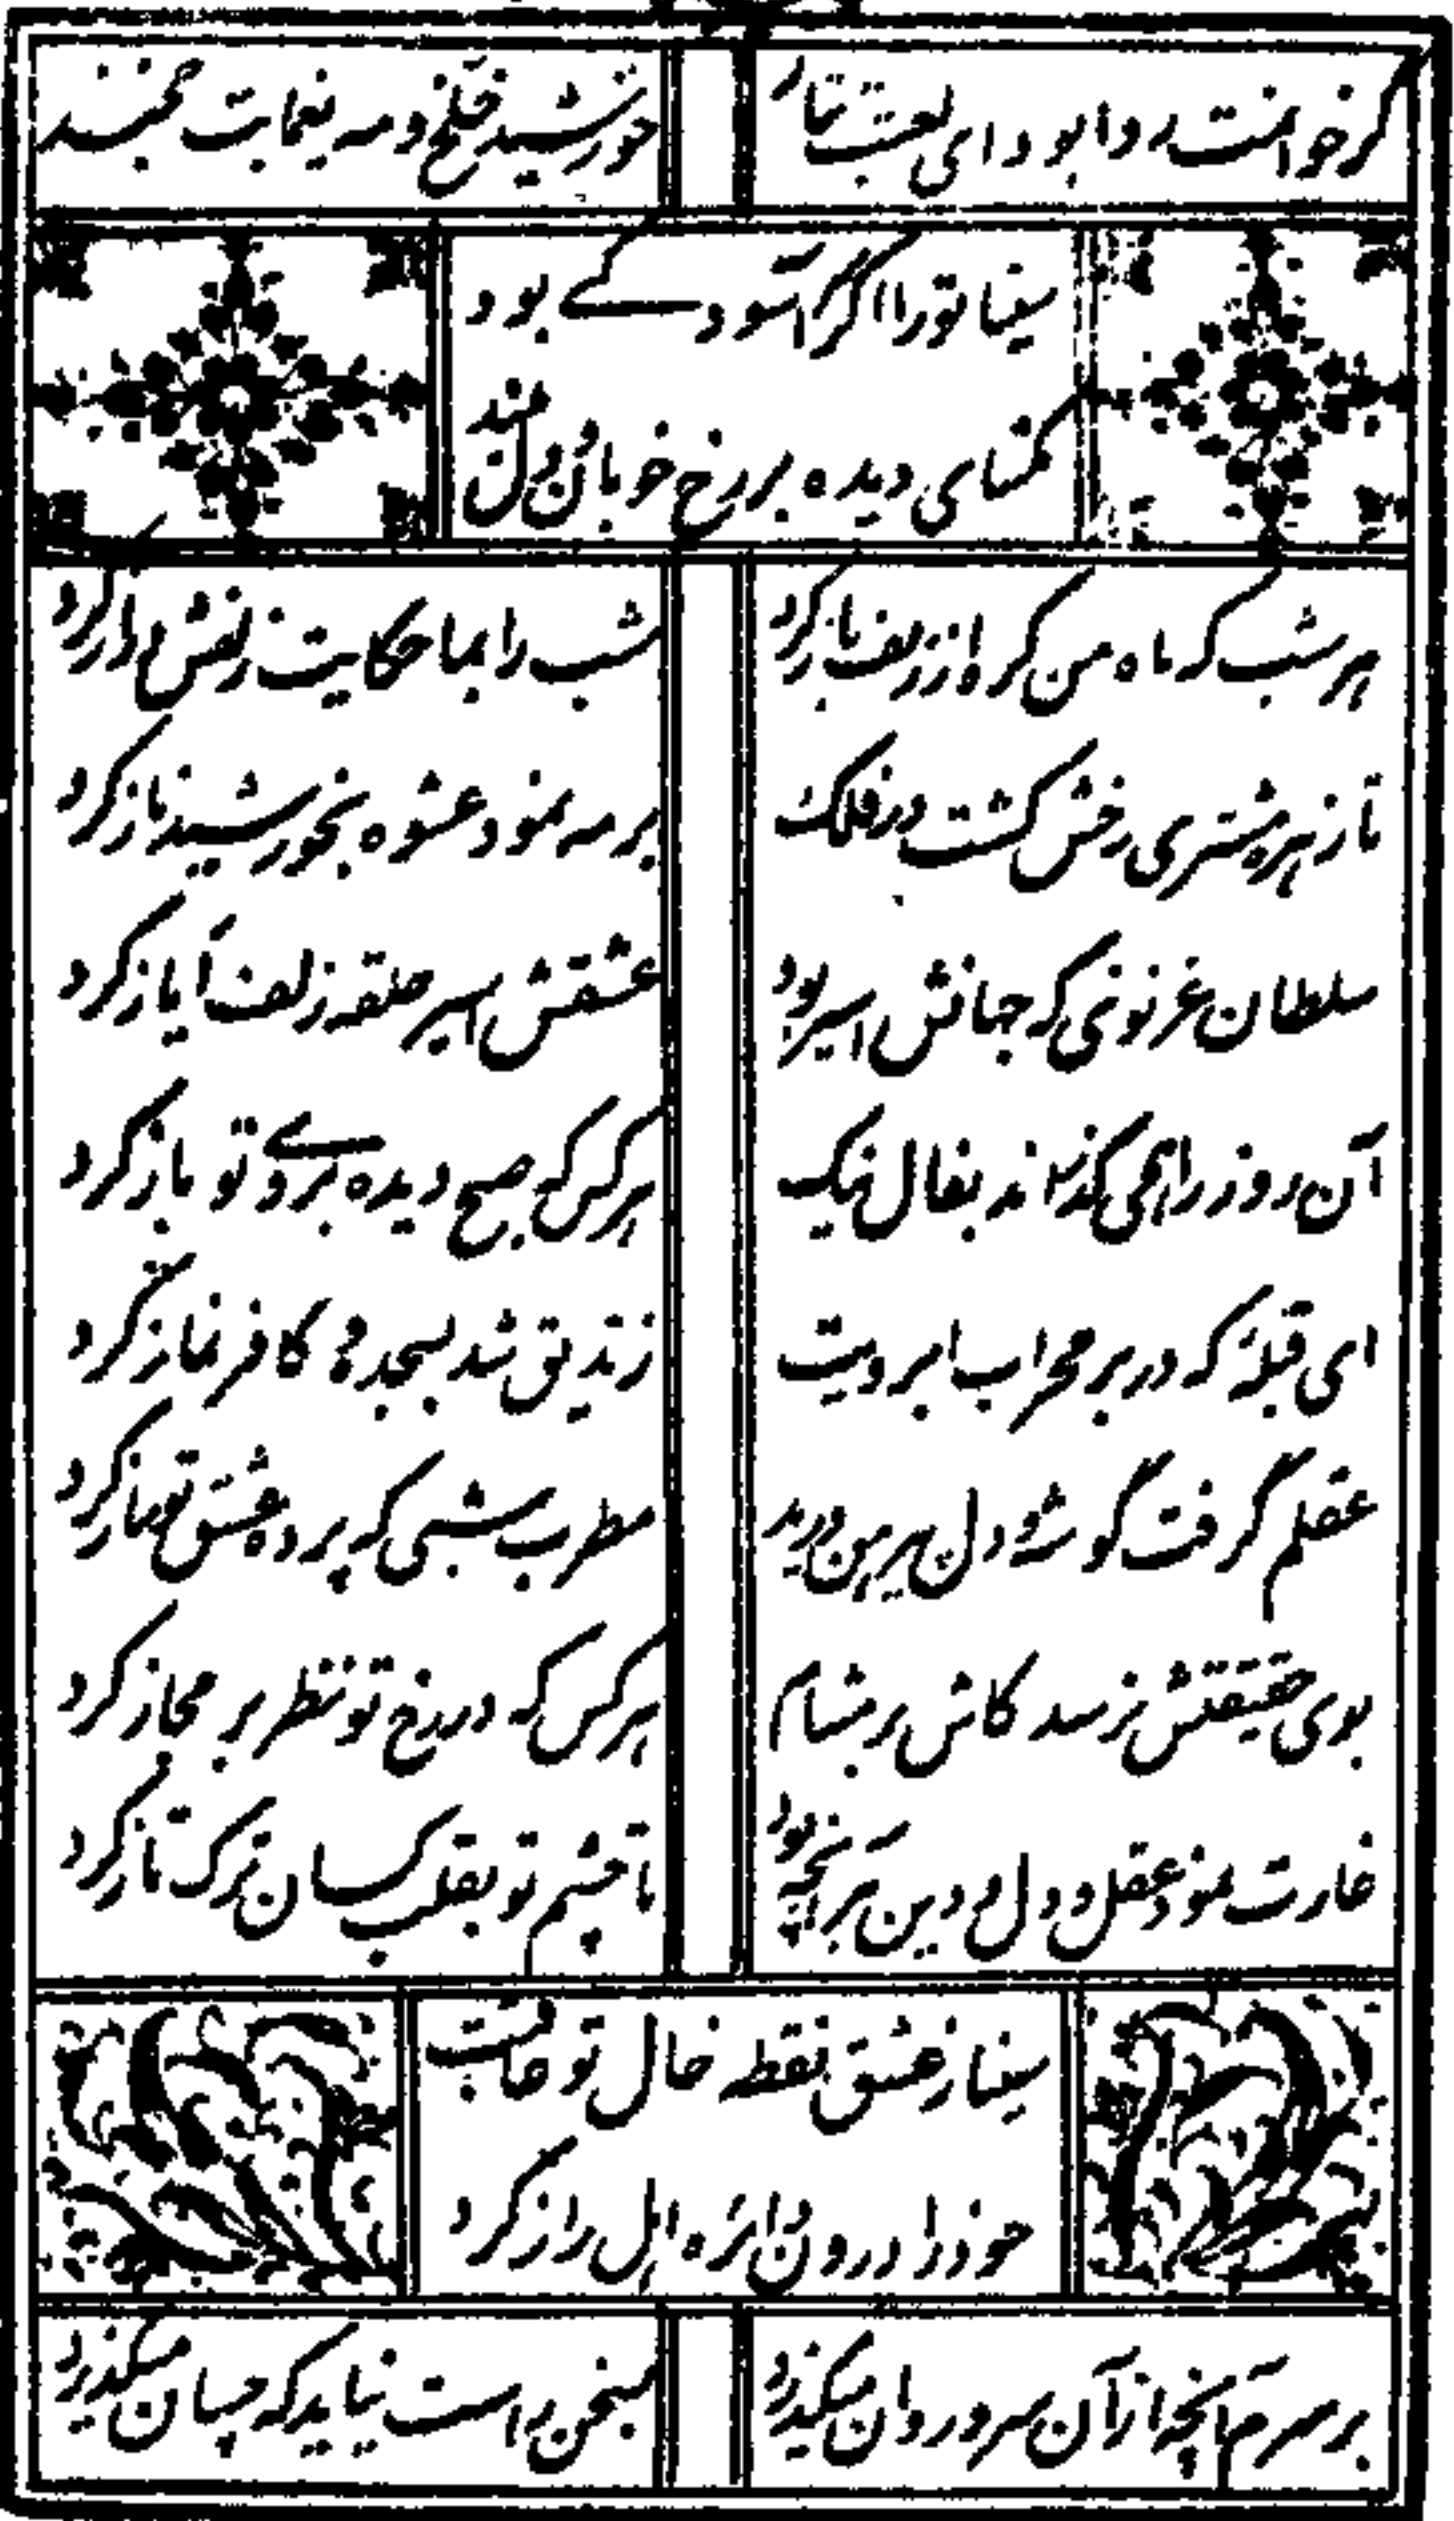 گر خوانمت روا بود ای لعبت تتار
خورشید خلخ و مه یغمات خجند
سینا تو را اگر آسودگے بود
مگشای دیده بر رخ خوبان دل پسند
هر شب که ماه من گره از زلف باز کرد
شب را بما حکایت زلفش دراز کرد
تا زهره مشتری رخش گشت در فلک
بر مه نمود عشوه بخورشید ناز کرد
سلطان غزنوی که جهانش اسیر بود
عشقش اسیر حلقه زلف ایاز کرد
آن روز را همی گذراند بفال نیک
هر کس که صبح دیده بروے تو باز کرد
ای قبلهٔ که در بر محراب ابرویت
زندیق شد بسجده و کافر نماز کرد
عقلم گرفت گوشه و دل پیرهن درید
مطرب شبی که پرده عشق تو ساز کرد
بوی حقیقتش نرسد کاش بر مشام
هر کس که در رخ تو نظر بر مجاز کرد
غارت نمود عقل و دل و دین هر آنچه بود
تا چشم تو بقلب کسان ترک تاز کرد
سینا ز عشق نقطه خال تو عاقبت
خود را درون دائره اهل راز کرد
بر سرم آنچه از آن سرو روان میگذرد
بسخن راست نیاید که چسان میگذرد